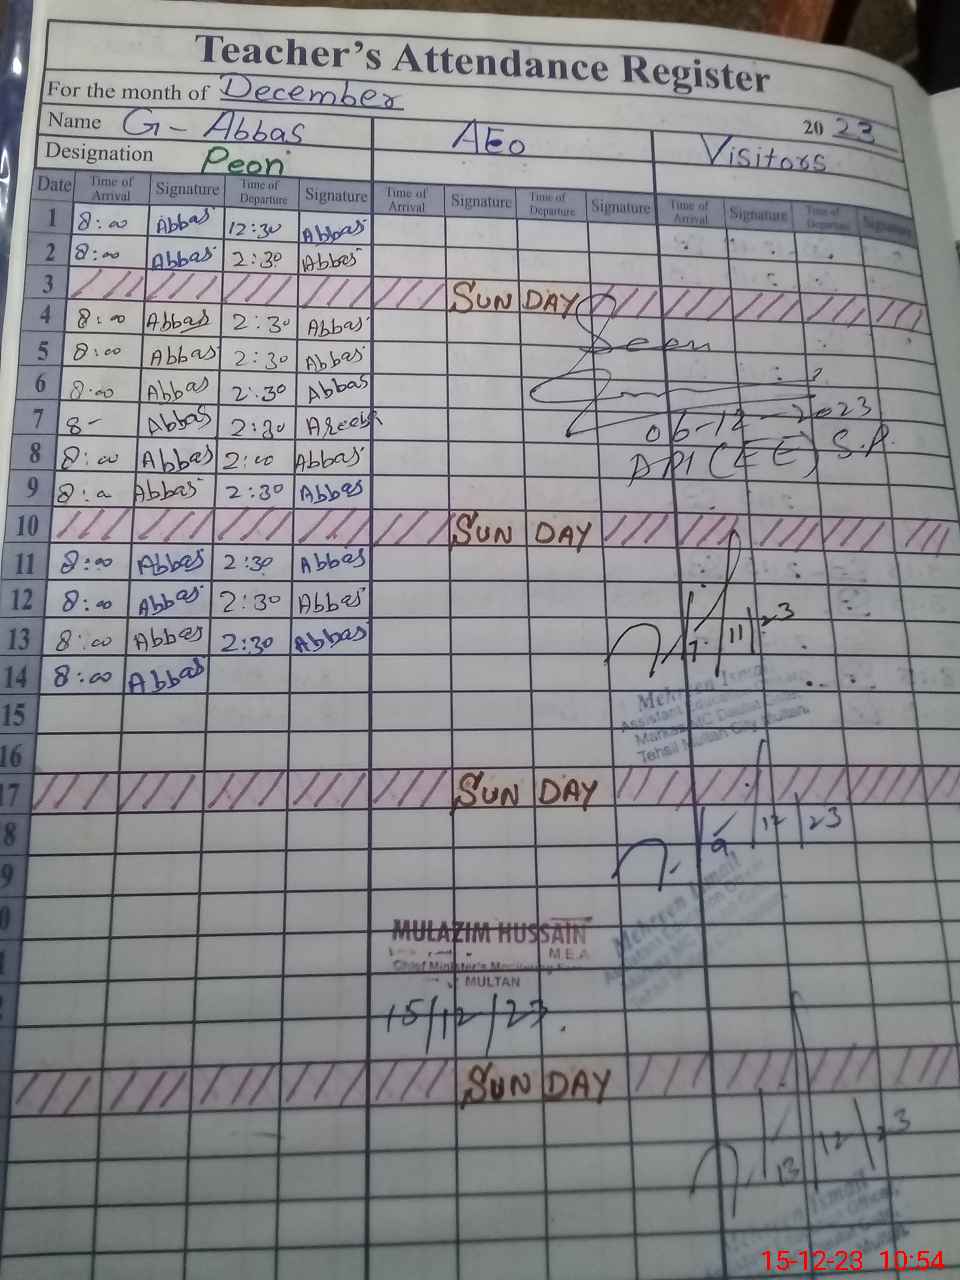 Teacher's Attendance Register
For the month of December
Name G - Abbas AEO 20 23
Designation Peon Visitors
Date Time of Arrival Signature Time of Departure Signature Time of Arrival Signature Time of Departure Signature Time of Arrival Signature Time of Departure Signature
1 8:00 Abbas 12:30 Abbas
2 8:00 Abbas 2:30 Abbas
3 SUNDAY
4 8:00 Abbas 2:30 Abbas
Seen
5 8:00 Abbas 2:30 Abbas
6 8:00 Abbas 2:30 Abbas
7 8- Abbas 2:30
06-12-2023
8 8:00 Abbas 2:00 Abbas
(EE)
9 8:00 Abbas 2:30 Abbas
10 SUNDAY
11 8:00 Abbas 2:30 Abbas
12 8:00 Abbas 2:30 Abbas
13 8:00 Abbas 2:30 Abbas
7/11/23
14 8:00 Abbas
Mehreen Ismail
Assistant Education Officer
15
Tehsil Multan City Multan.
16
17 SUNDAY
8
9/12/23
9
Mehreen Ismail
0
MULAZIM HUSSAIN
M.E.A
1
Chief Minister's Monitoring
MULTAN
2
15/12/23.
SUNDAY
13/12/23
Mehreen Ismail
15-12-23 10:54